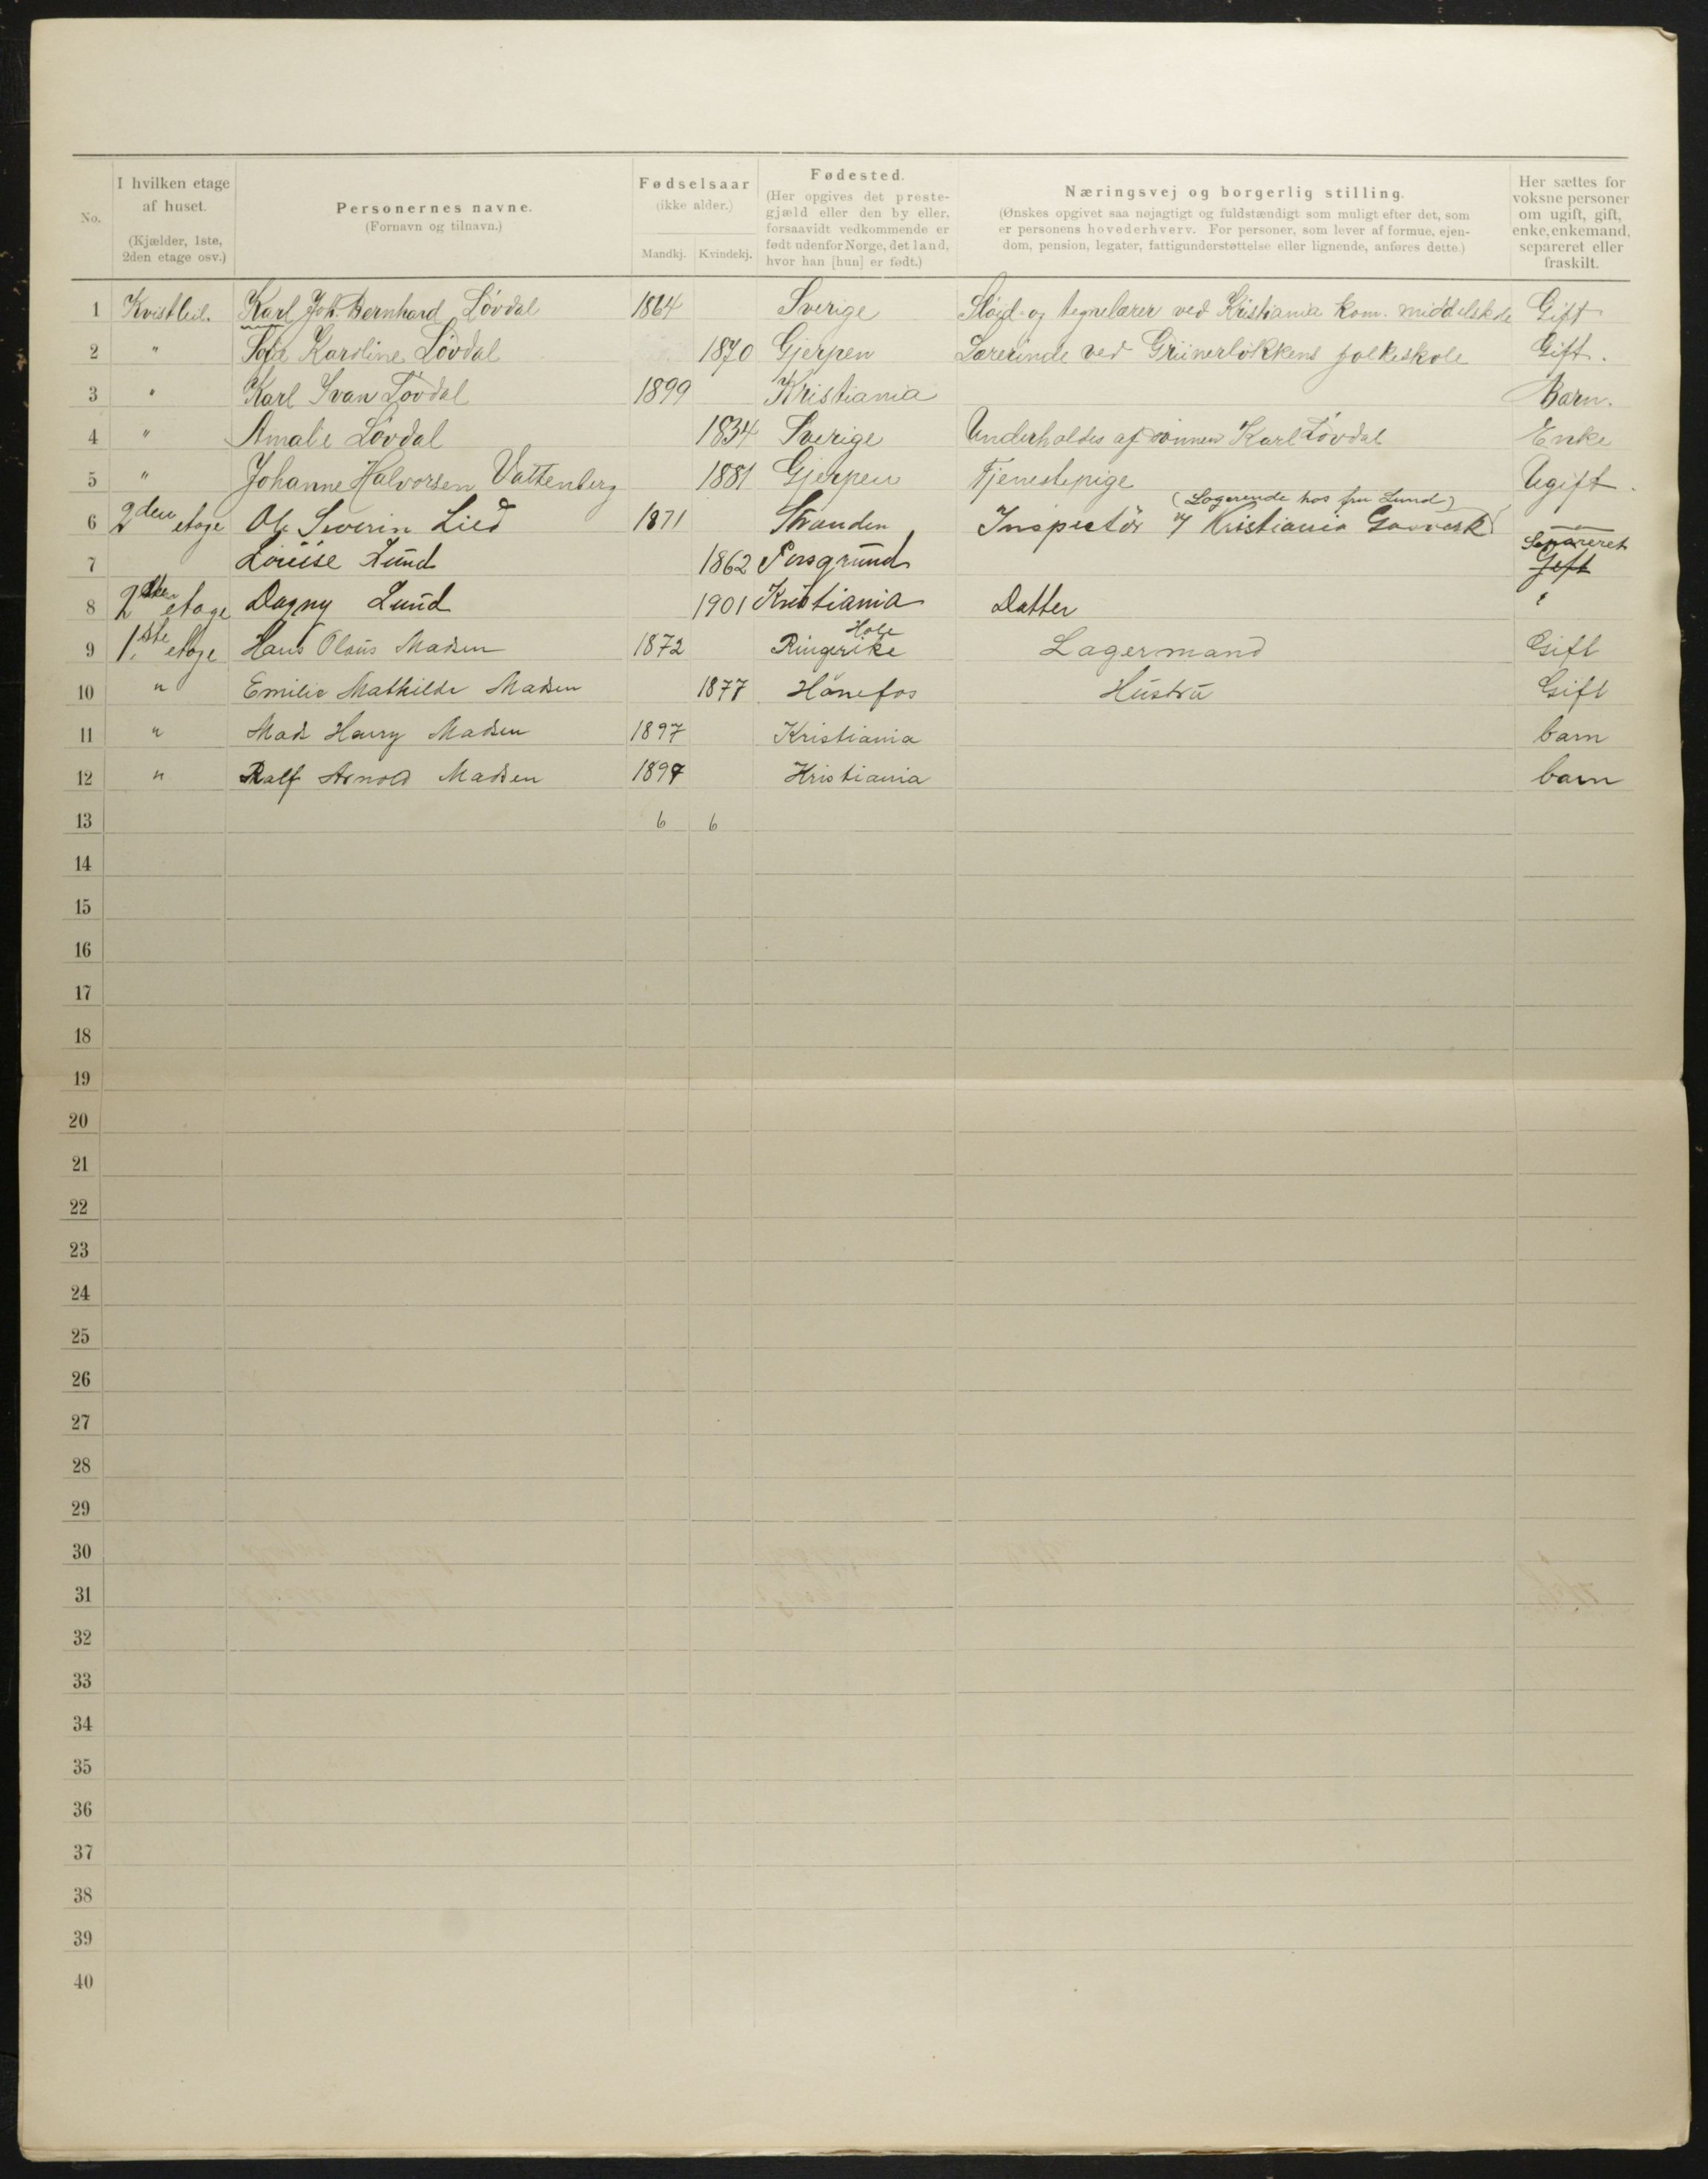 No.
I hvilken etage af huset. (Kjælder, 1ste, 2den etage osv.)
Personernes navne. (Fornavn og tilnavn.)
Fødselsaar (ikke alder.)
Mandkj. Kvindekj.
Fødested. (Her opgives det prestegjæld eller den by eller, forsaavidt vedkommende er født udenfor Norge, det land, hvor han [hun] er født.)
Næringsvej og borgerlig stilling. (Ønskes opgivet saa nøjagtigt og fuldstændigt som muligt efter det, som er personens hovederhverv. For personer, som lever af formue, ejendom, pension, legater, fattigunderstøttelse eller lignende, anføres dette.)
Her sættes for voksne personer om ugift, gift, enke, enkemand, separeret eller fraskilt.
1 Kvistleil. Karl Joh. Bernhard Løvdal 1864 Sverige Sløjd- og tegnelærer ved Kristiania kom. middelskole Gift
2 " Sofie Karoline Løvdal 1870 Gjerpen Lærerinde ved Grünerløkkens folkeskole Gift.
3 " Karl Ivan Løvdal 1899 Kristiania Barn.
4 " Amalie Løvdal 1834 Sverige Underholdes af sønnen Karl Løvdal Enke
5 " Johanne Halvorsen Vattenberg 1881 Gjerpen Tjenestepige Ugift.
(Logerende hos fru Lund)
6 2den etage Ole Severin Lied 1871 Stranden Inspectör v/ Kristiania Gasverk —
Separeret
7 Louise Lund 1862 Porsgrund Gift
8 2den etage Dagny Lund 1901 Kristiania Datter
Hole
9 1.ste etage Hans Olaus Madsen 1872 Ringerike Lagermand Gift
10 " Emilie Mathilde Madsen 1877 Hönefos Hustru Gift
11 " Mads Harry Madsen 1897 Kristiania barn
12 " Ralf Arnold Madsen 1897 Kristiania barn
13 6 6
14
15
16
17
18
19
20
21
22
23
24
25
26
27
28
29
30
31
32
33
34
35
36
37
38
39
40